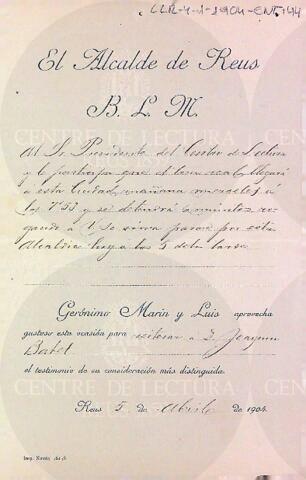 CLR-4-1-1904-ENT-44
El Alcalde de Reus
B. L. M.
Al Sr. Presidente del Centro de Lectura
y le participa que el tren real llegará
a esta Ciudad mañana miercoles á
las 7'53 y se detendrá 6 minutos ro
gando á V. se sirva pasar por esta
Alcaldía hoy a las 5 de la tarde
Gerónimo Marin y Luis aprovecha
gustoso esta ocasión para reiterar a D. Joaquin
Borbot
el testimonio de su consideración más distinguida.
Reus 5 de Abril de 1904.
CENTRE DE LECTURA
CENTRE DE LECTURA